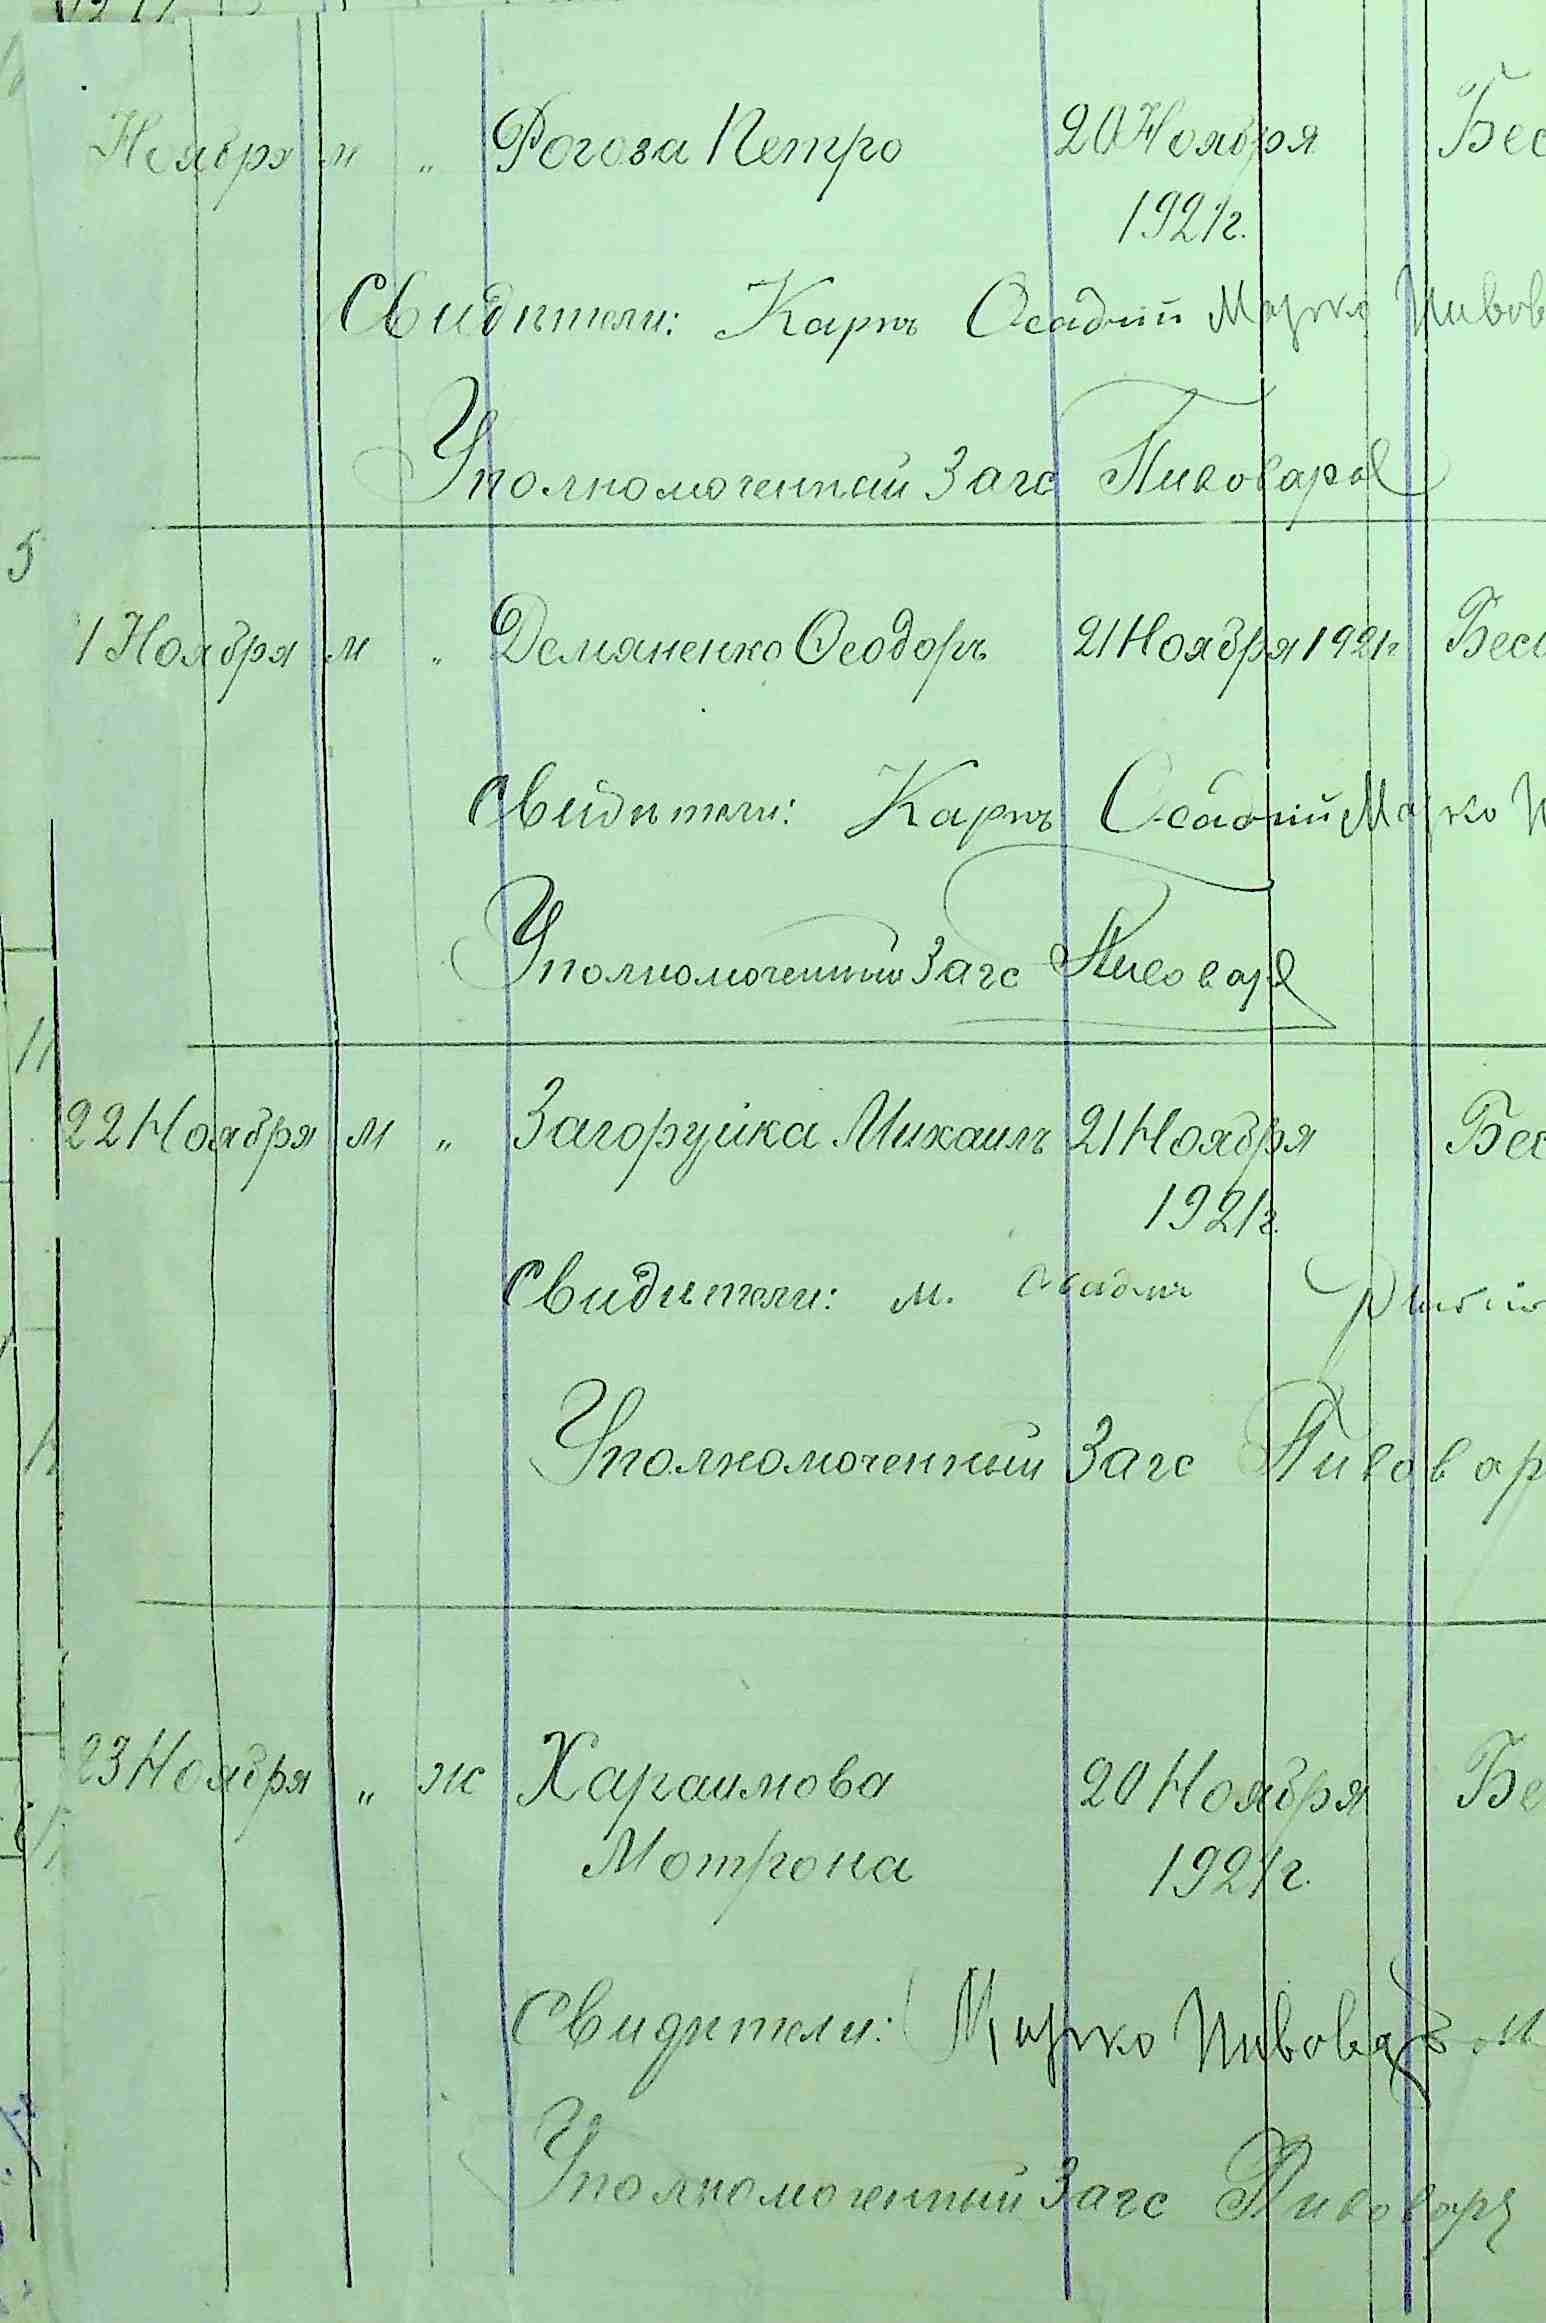 Ноября м „ Рогоза Петро 20 Ноября Бес
1921 г.
Свидѣтели: Карпъ Осадчій Марко Пивов
Уполномоченный Загс Пивоваръ
5
1 Ноября м „ Демяненко Феодоръ 21 Ноября 1921 г Бес
Свидѣтели: Карпъ Осадчій Марко П
Уполномоченный Загс Пивовар
22 Ноября м „ Загоруйка Михаилъ 21 Ноября Бес
1921 г.
Свидѣтели: М. Осадчъ
Уполномоченный Загс Пивовар
23 Ноября „ ж Хараимова 20 Ноября Бе
Мотрона 1921 г.
Свидѣтели: Марко Пивовар
Уполномоченный Загс Пивоваръ